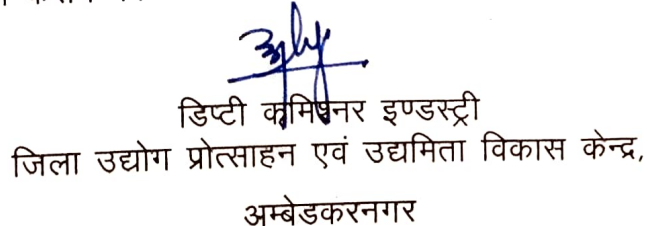 डिप्टी कमिश्नर इण्डस्ट्री
जिला उद्योग प्रोत्साहन एवं उद्यमिता विकास केन्द्र,
अम्बेडकरनगर